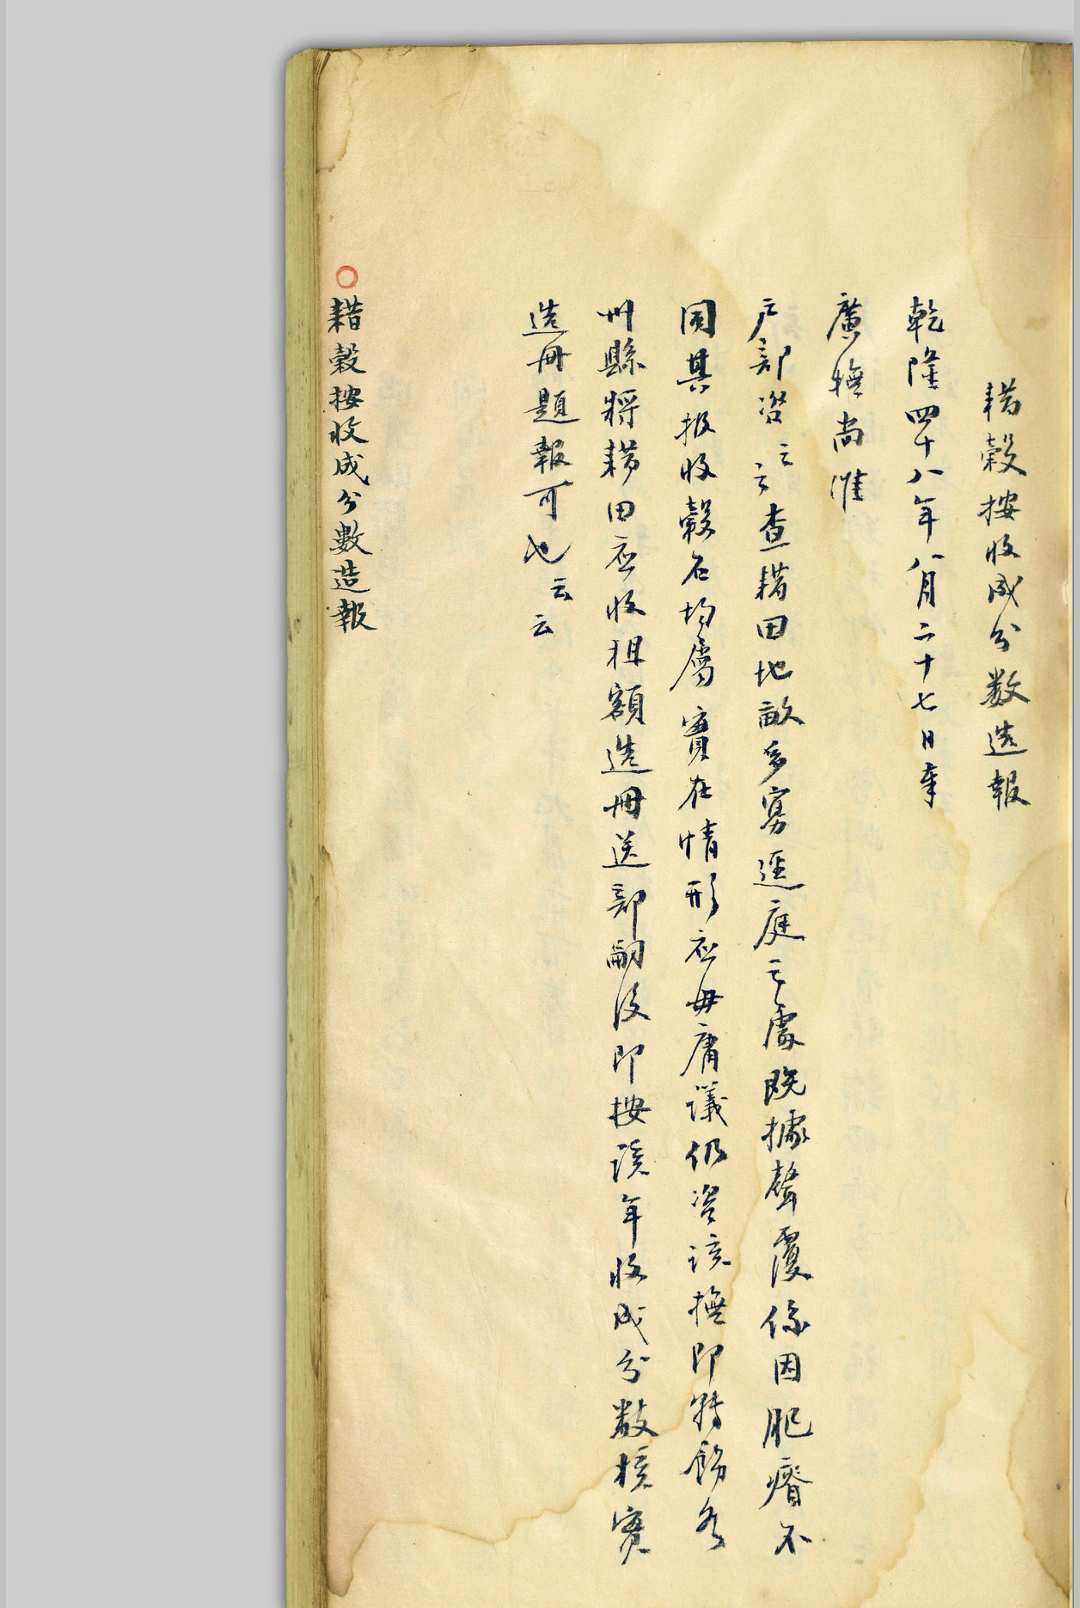 耤穀按收成分数造報
乾隆四十八年八月二十七日奉
廣撫尚准
戶部咨云云查耤田地畝多寡逕庭之處既據聲覆係因肥瘠不
同其报收穀石均屬實在情形应毋庸議仍咨该撫即轉飭各
州縣將耤田应收租額造冊送部嗣後即按该年收成分数核實
造冊題報可也云云
耤穀按收成分數造報